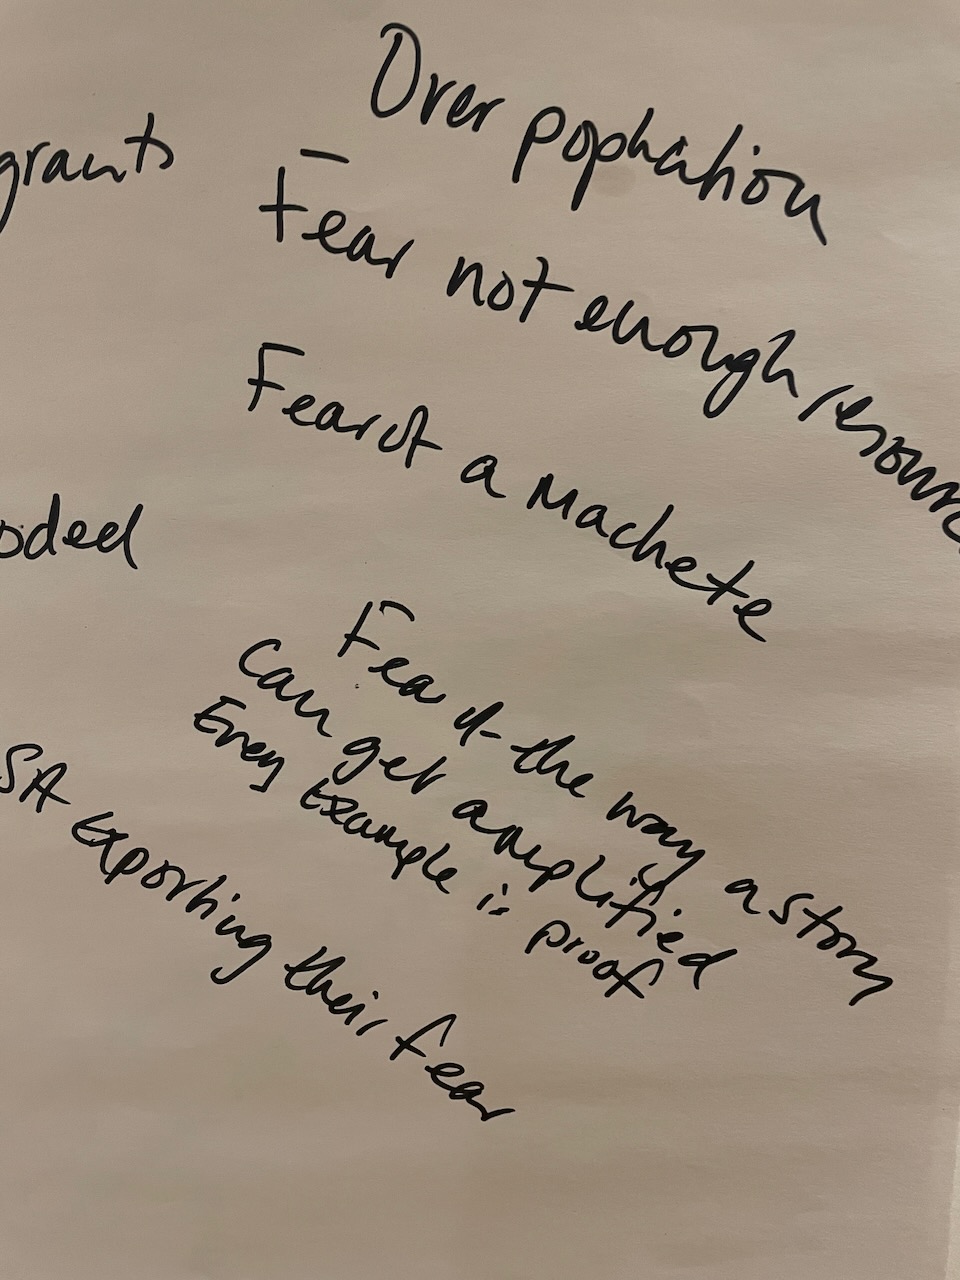 Over pophation
grants
Fear not enough resourc
Fear of a machete
oded
Fear of the way a story
can get amplified
Every Example is proof
SA exporting their fear